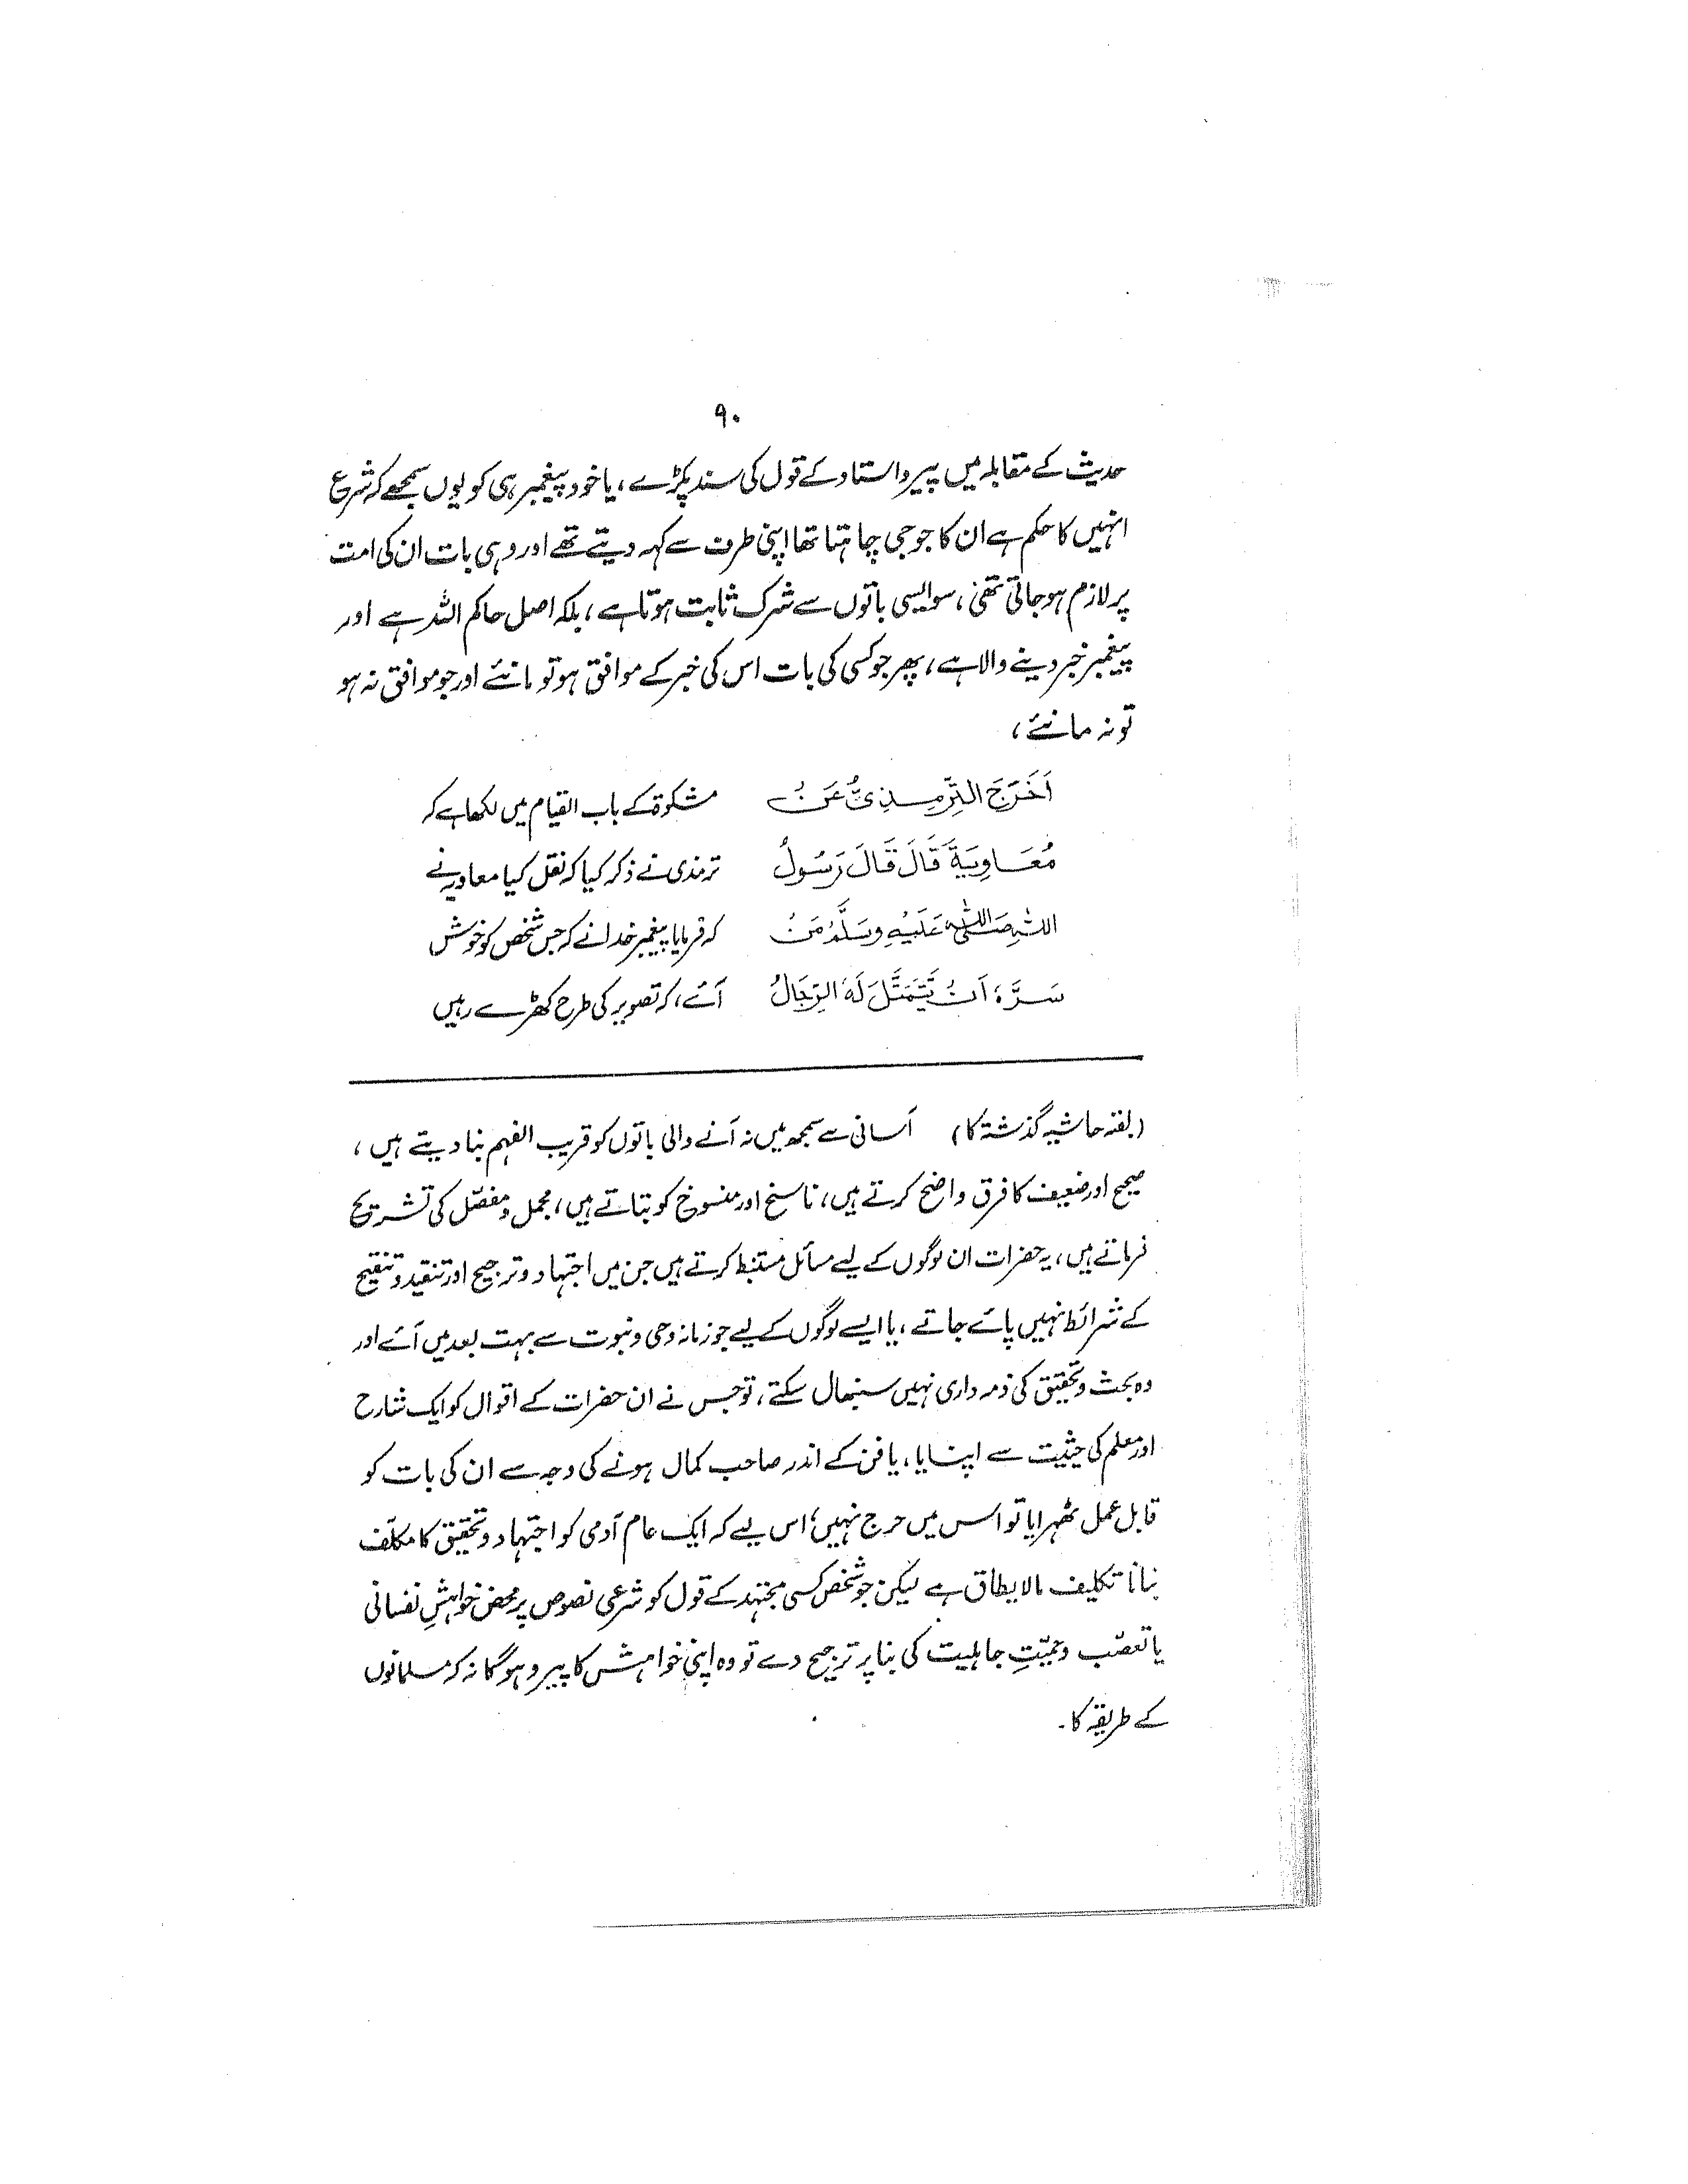 ۹۰
حدیث کے مقابلہ میں پیر و استاد کے قول کی سند پکڑے، یا خود پیغمبر ہی کو یوں سمجھے کہ شرع
انہیں کا حکم ہے ان کا جو جی چاہتا تھا اپنی طرف سے کہہ دیتے تھے اور وہی بات ان کی امت
پر لازم ہو جاتی تھی، سو ایسی باتوں سے شرک ثابت ہوتا ہے، بلکہ اصل حاکم اللہ ہے اور
پیغمبر خبر دینے والا ہے، پھر جو کسی کی بات اس کی خبر کے موافق ہو تو مانئے اور جو موافق نہ ہو
تو نہ مانئے،
اَخْرَجَ التِّرْمِذِیُّ عَنْ
مُعَاوِیَةَ قَالَ قَالَ رَسُولُ
اللہِ صَلَّی اللہُ عَلَیْهِ وَسَلَّمَ مَنْ
سَرَّہٗ اَنْ یَّتَمَثَّلَ لَهُ الرِّجَالُ
مشکوٰۃ کے باب القیام میں لکھا ہے کہ
ترمذی نے ذکر کیا کہ نقل کیا معاویہ نے
کہ فرمایا پیغمبر خدا نے کہ جس شخص کو خوش
آئے، کہ تصویر کی طرح کھڑے رہیں
(بقیہ حاشیہ گذشتہ کا) آسانی سے سمجھ میں نہ آنے والی باتوں کو قریب الفہم بنا دیتے ہیں،
صحیح اور ضعیف کا فرق واضح کرتے ہیں، ناسخ اور منسوخ کو بتاتے ہیں، مجمل و مفصّل کی تشریح
فرماتے ہیں، یہ حضرات ان لوگوں کے لیے مسائل مستنبط کرتے ہیں جن میں اجتہاد و ترجیح اور تنقید و تنقیح
کے شرائط نہیں پائے جاتے، یا ایسے لوگوں کے لیے جو زمانہ وحی و نبوت سے بہت بعد میں آئے اور
وہ بحث و تحقیق کی ذمہ داری نہیں سنبھال سکتے، تو جس نے ان حضرات کے اقوال کو ایک شارح
اور معلم کی حیثیت سے اپنایا، یا فن کے اندر صاحب کمال ہونے کی وجہ سے ان کی بات کو
قابل عمل ٹھہرایا تو اس میں حرج نہیں؛ اس لیے کہ ایک عام آدمی کو اجتہاد و تحقیق کا مکلّف
بنانا تکلیف مالایطاق ہے لیکن جو شخص کسی مجتہد کے قول کو شرعی نصوص پر محض خواہشِ نفسانی
یا تعصّب و حمیّتِ جاہلیت کی بنا پر ترجیح دے تو وہ اپنی خواہش کا پیرو ہوگا نہ کہ مسلمانوں
کے طریقہ کا۔